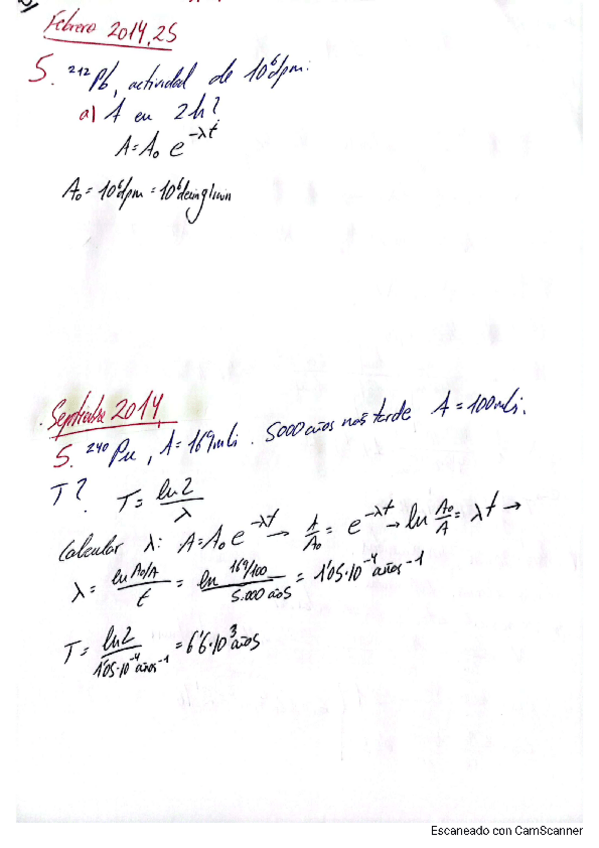 Febrero 2014, 25
5. ²¹²Pb, actividad de 10⁶dpm:
a) A en 2h?
A=A₀ e^-λt
A₀ = 10⁶dpm = 10⁶desing/min
Septiembre 2014
5. ²⁴⁰Pu, A=169mCi. 5000 años más tarde A=100mCi.
T? T = ln2/λ
Calcular λ: A=A₀ e^-λt → A/A₀ = e^-λt → ln A₀/A = λt →
λ = ln A₀/A / t = ln 169/100 / 5.000 años = 1'05·10⁻⁴ años⁻¹
T = ln2 / 1'05·10⁻⁴ años⁻¹ = 6'6·10³ años
Escaneado con CamScanner